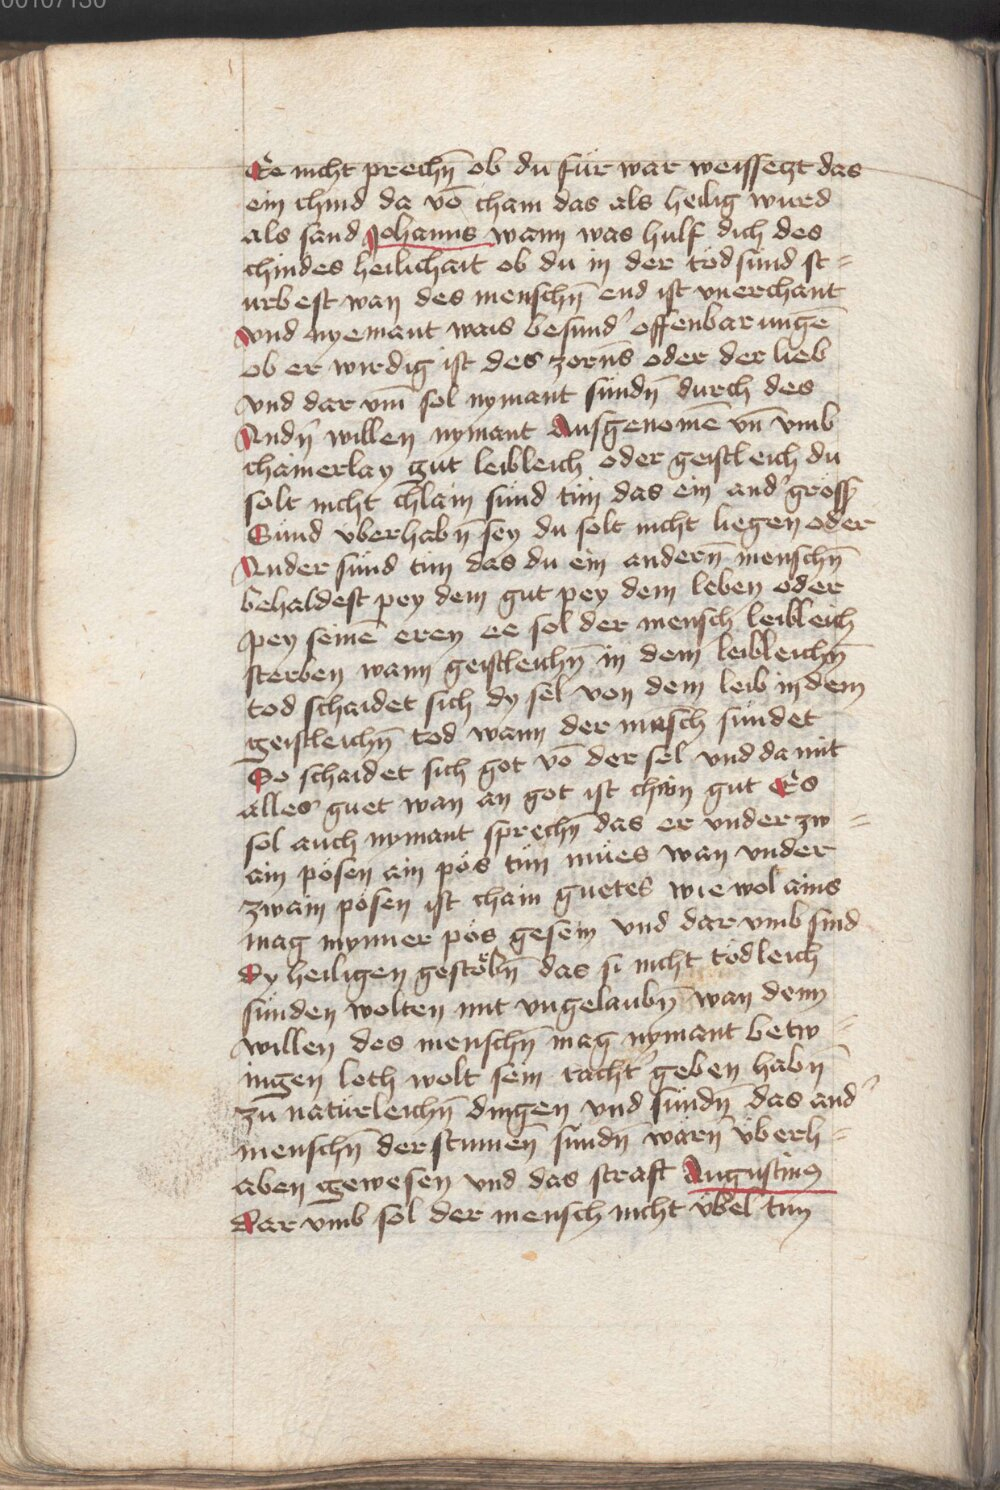 Ee nicht prechn̄ ob du für war weissegt das
ein chind da vō cham das als heilig wurd
als sand Johanns wann was hulf dich des
chindes heilichait ob du in der tödsünd st=
urbest wan des menschn̄ end ist vnerchant
vnd nyemant wais besund' offenbarungē
ob er wirdig ist des zorns oder der lieb
vnd dar vm̄ sol nymant sündn̄ durch des
Andn̄ willen nymant Ausgenomē vn̄ vmb
chainerlay gut leibleich oder geistleich du
solt nicht chlain sünd tün das ein and' gröss'
Sünd vberhabn̄ sey du solt nicht liegen oder
Ander sünd tün das du ein andern̄ menschn̄
behaldest pey dem gut pey dem leben oder
pey seinē eren ee sol der mensch leibleich
sterben wann geistleichn̄ in dem leibleichn̄
tod schaidet sich dy sel von dem leib in dem
geistleichn̄ tod wann der mēsch sündet
So schaidet sich got vō der sel vnd da mit
alles guet wan an got ist chain gut Es
sol auch nymant sprechn̄ das er vnder zw=
ain pösen ain pös tün mües wan vnder
zwain pösen ist chain guetes wie wol ains
mag mynner pös gesein vnd dar vmb sind
dy heiligen gestörbn̄ das si nicht tödleich
sünden wolten mit vngelaubn̄ wan denn
willen des menschn̄ mag nymant betw=
ingen loth wolt sein tacht' geben habn̄
zu natürleichn̄ dingen vnd sündn̄ das and'
menschn̄ der stumen̄ sündn̄ warn̄ vberh=
aben gewesen vnd das straft Augustinus
dar vmb sol der mensch nicht vbel tun